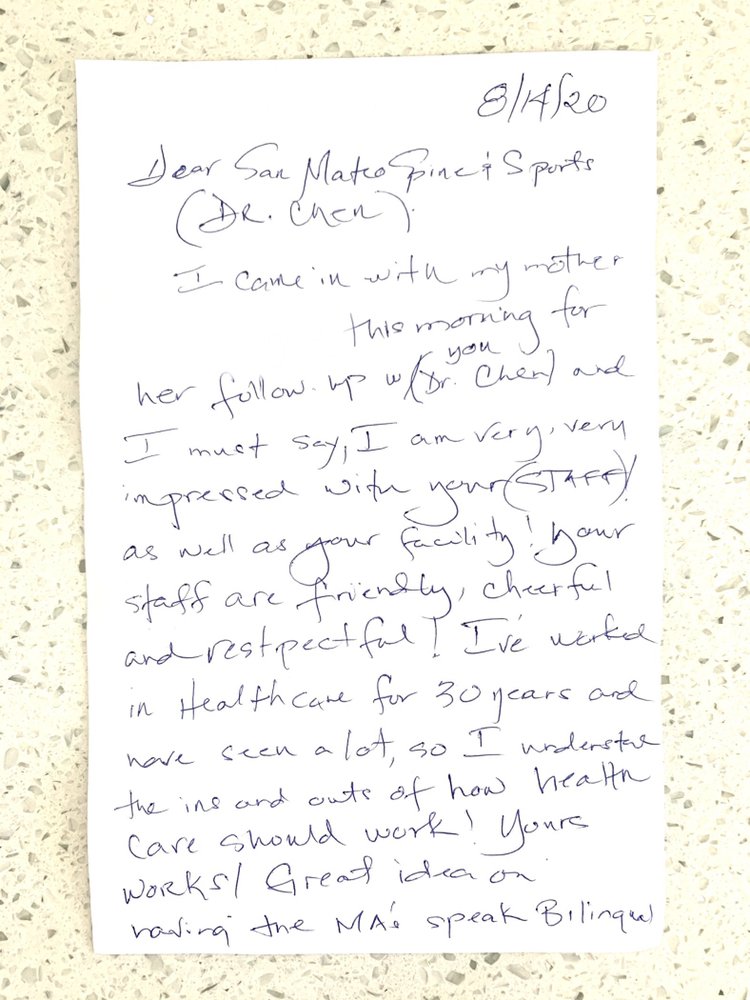 8/14/20
Dear San Mateo Spine & Sports
(DR. Chen).
I came in with my mother
this morning for
you
her follow up w/(Dr. Chen) and
I must say, I am very, very
impressed with your (STAFF)!
as well as your facility! Your
staff are friendly, cheerful
and restpectful! I've worked
in Healthcare for 30 years and
have seen a lot, so I understand
the ins and outs of how health
care should work! Yours
works! Great idea on
having the MA's speak Bilingual